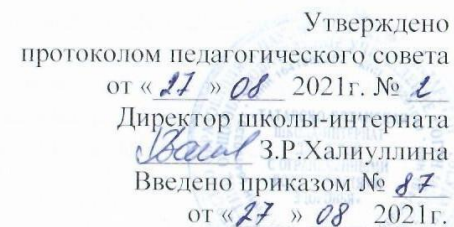 Утверждено
протоколом педагогического совета
от «27» 08 2021г. №
Директор школы-интерната
З.Р.Халиуллина
Введено приказом № 87
от «27» 08 2021г.